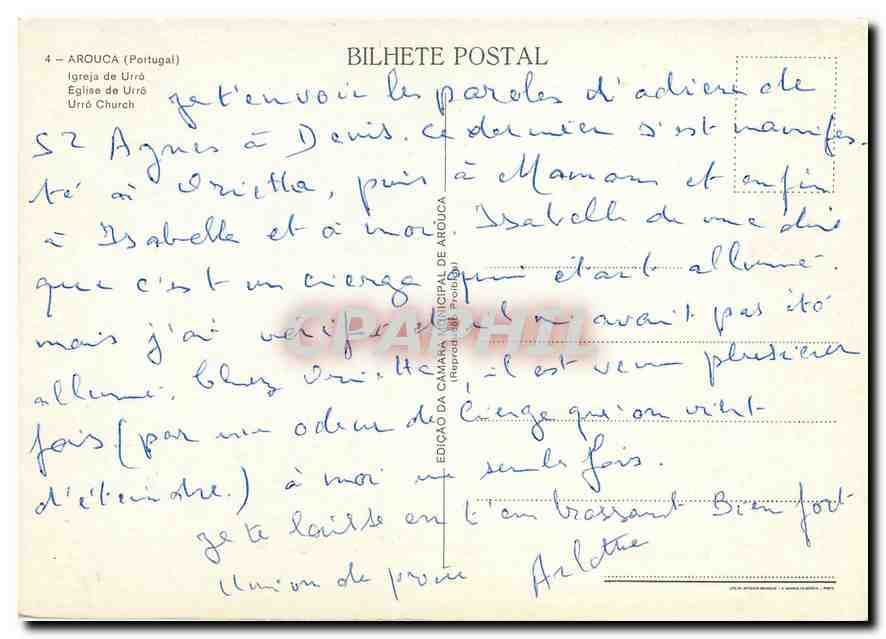 4 – AROUCA (Portugal)
Igreja de Urrô
Église de Urrô
Urrô Church
BILHETE POSTAL
Je t'envoie les paroles d'adieu de
St Agnes à Denis. Ce dernier s'est manifes-
té à Orietta, puis à Maman et enfin
à Isabelle et à moi. Isabelle de me dire
que c'est un cierge qui était allumé.
mais j'ai vérifié et il n'avait pas été
allumé. Chez Orietta, il est venu plusieurs
fois (par une odeur de cierge qu'on vient
d'éteindre.) à moi une seule fois.
Je te laisse en t'embrassant Bien fort
Union de prière Arlette
EDIÇÃO DA CÂMARA MUNICIPAL DE AROUCA
(Reprod. Proibida)
CPAPHIL